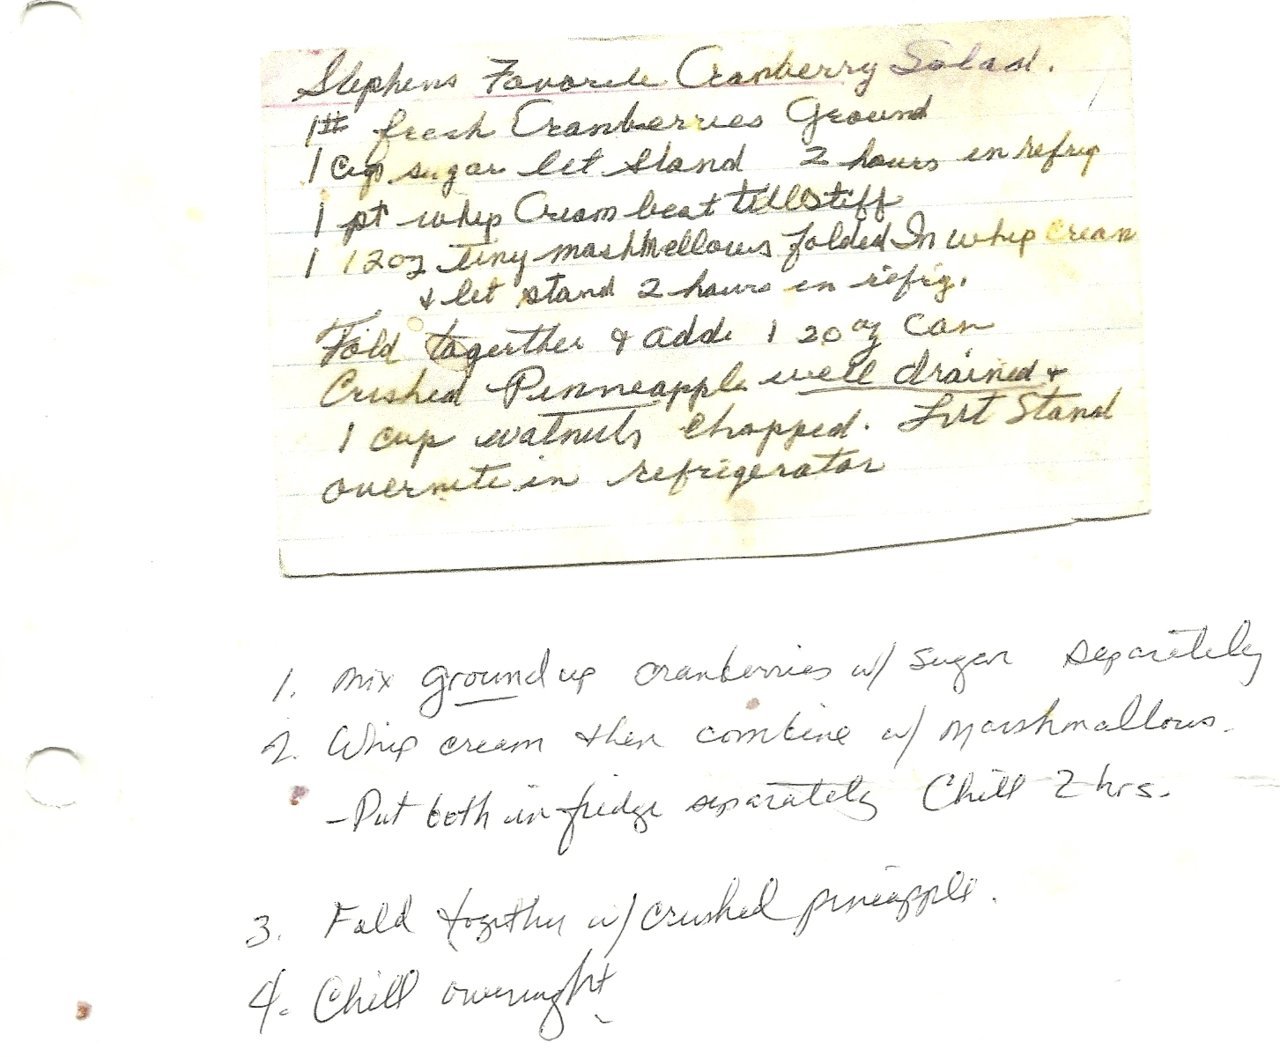 Stephens Favorite Cranberry Salad.
1# fresh Cranberries Ground
1 cup sugar let stand 2 hours in refrig
1 pt whip Cream beat till stiff
1 12oz tiny mashmellows folded In whip cream
& let stand 2 hours in refrig.
Fold together & add 1 20 oz can
Crushed Pinneapple well drained &
1 cup walnuts chopped. Let Stand
overnite in refrigerator
1. Mix ground up cranberries w/ sugar separately
2. Whip cream then combine w/ marshmallows.
- Put both in fridge separately Chill 2 hrs.
3. Fold together w/ crushed pineapple.
4. Chill overnight